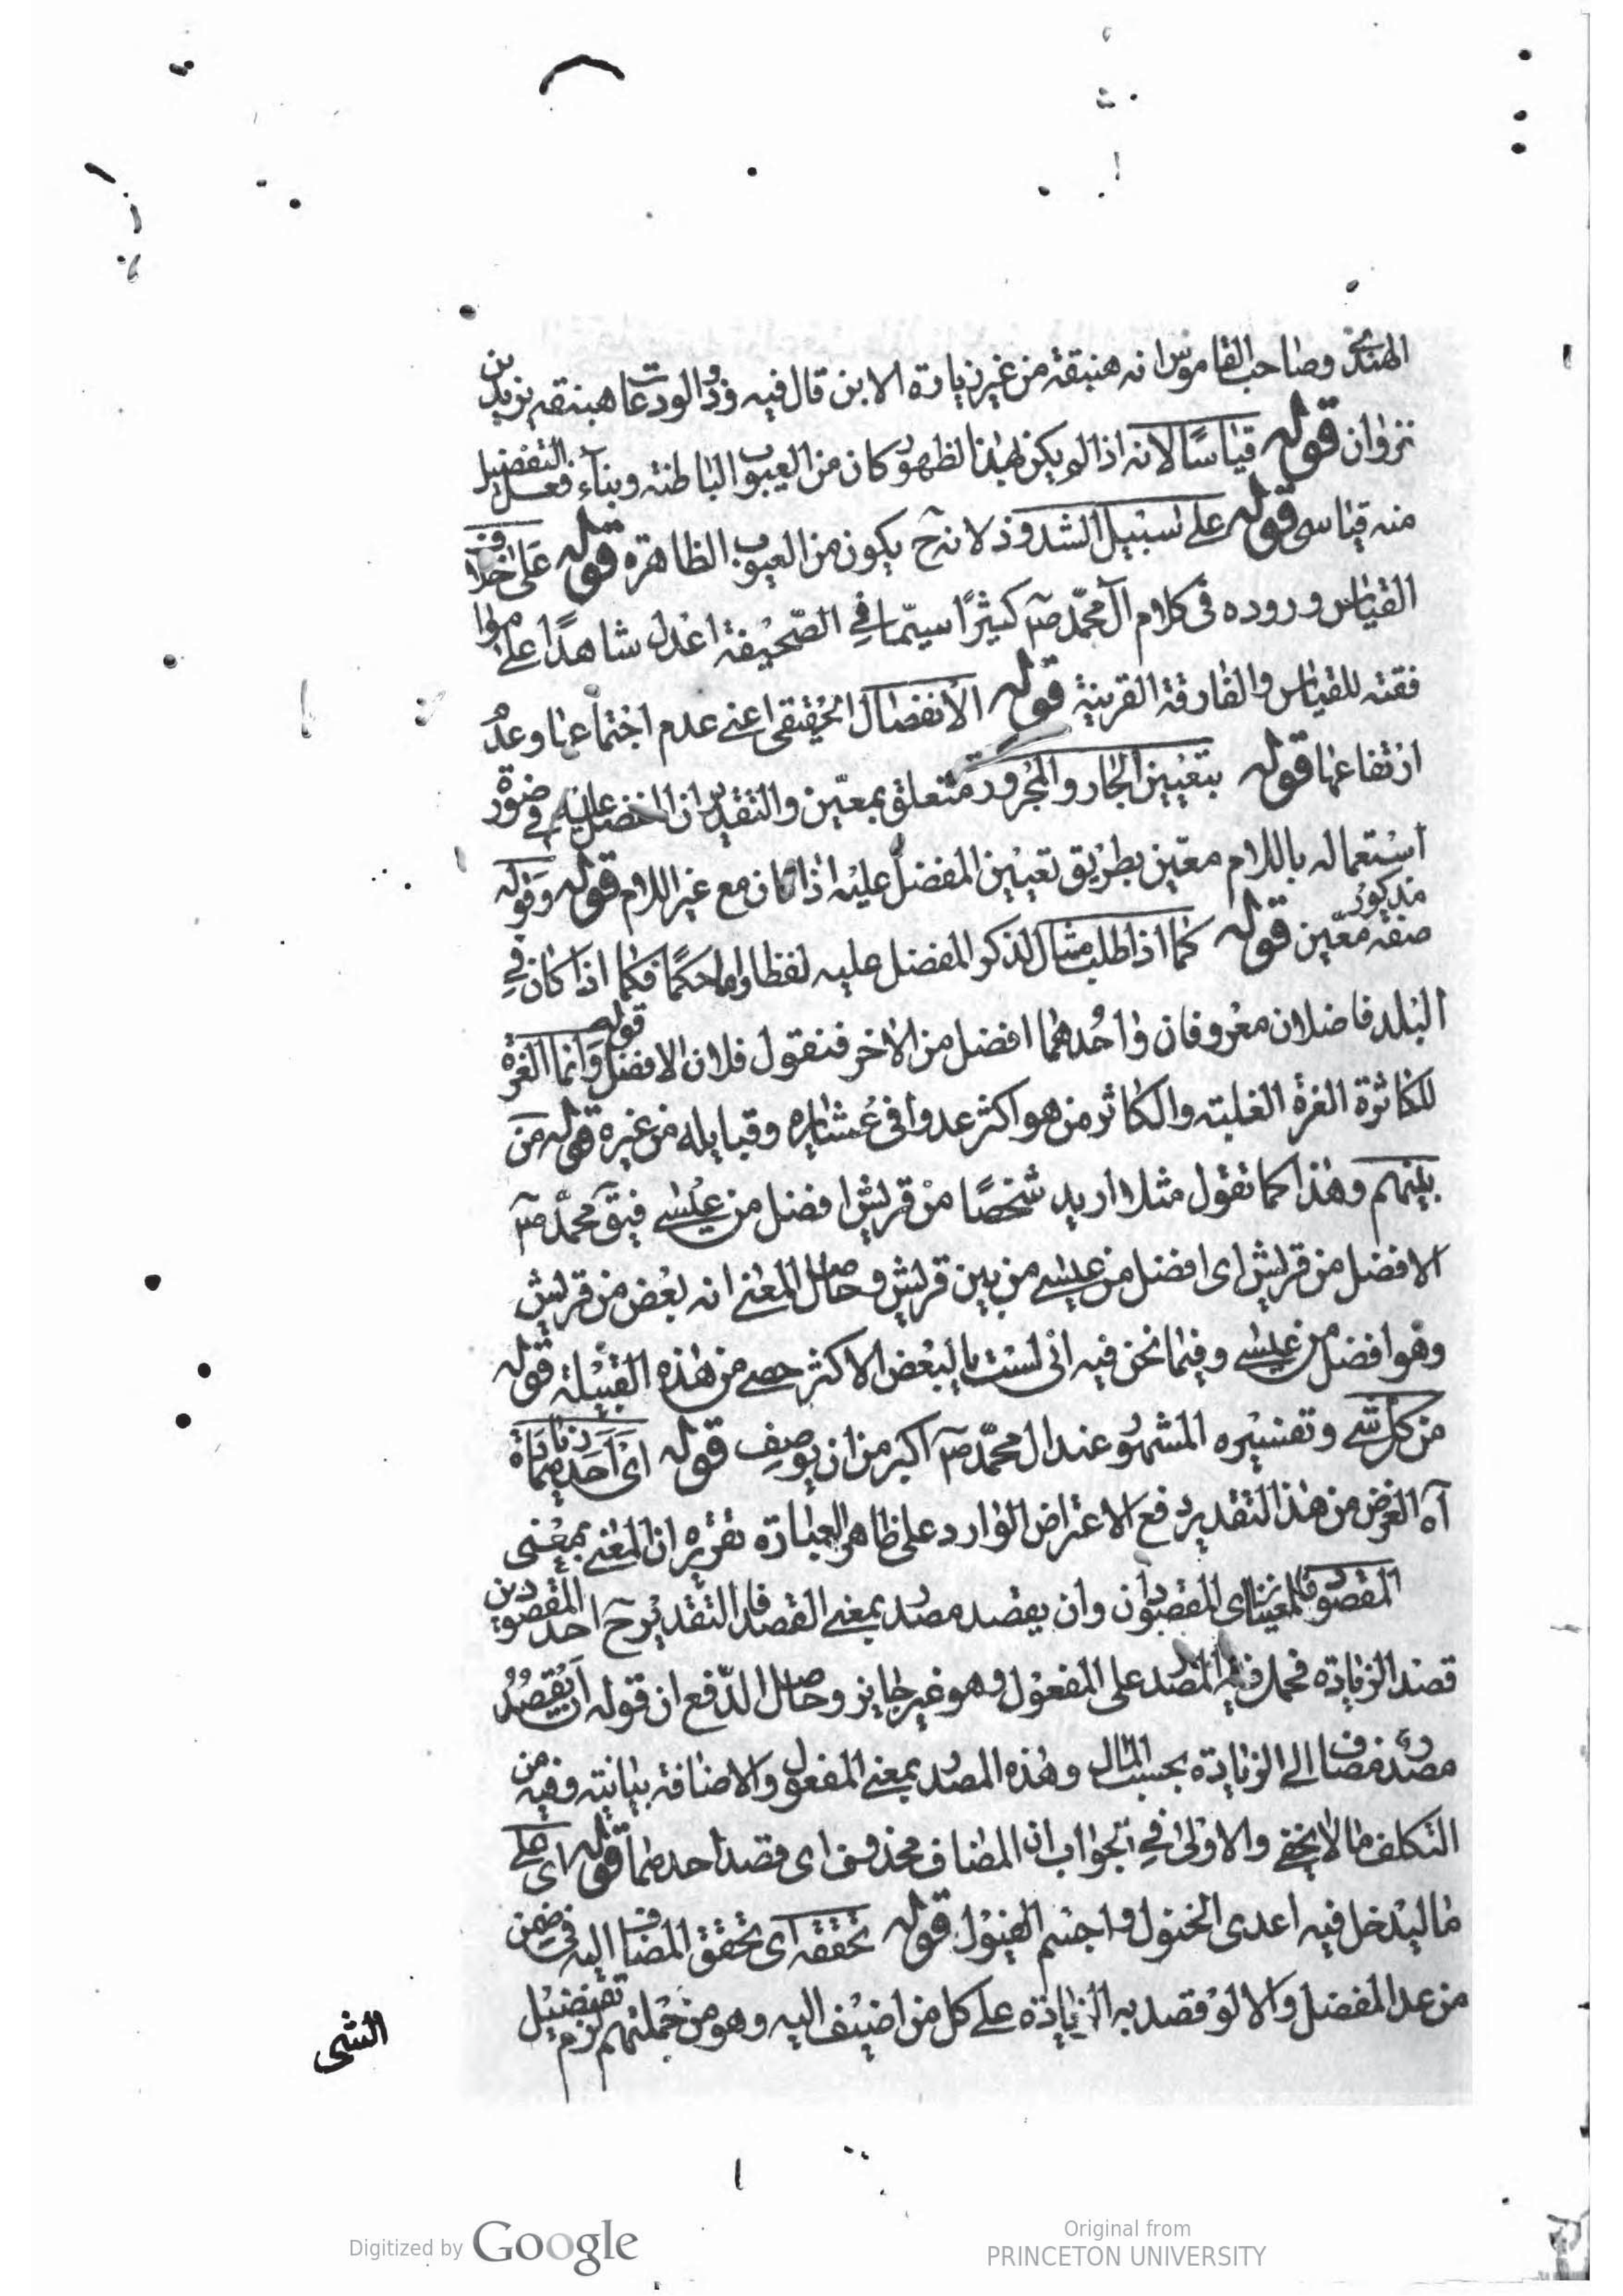 الهندي وصاحب القاموس انه هنبقة من غير زيادة الابن قال فيه وذو الودعات هبنقه يزيد بن
ثروان قوله قياسًا لانه اذا لم يكن بهذا الظهور كان من العيوب الباطنة وبناء افعل التفضيل
منه قياسى قوله على سبيل الشذوذ لانه ح يكون من العيوب الظاهرة قوله على خلاف
القياس ووروده فى كلام آل محمّد ص كثيرًا سيّما فى الصّحيفة اعدل شاهدًا على موا
فقته للقياس والفارقة القرينة قوله الانفصال الحقيقى اعنى عدم اجتماعها وعدم
ارتفاعها قوله بتعيين الجار والمجرور متعلق بمعيّن والتقدير ان المفضل عليه فى صورة
استعماله باللام معيّن بطريق تعيين المفضل عليه اذا كان مع غير اللام قوله وقوله
مذكور صفة معيّن قوله كما اذا طلب مثال لذكر المفضل عليه لفظا واما حكمًا فكما اذا كان فى
البلد فاضلان معروفان واحدهما افضل من الاخر فنقول فلان الافضل قوله وانما العزة
للكاثرة العزة الغلبة والكاثر من هو اكثر عددا فى عشايره وقبايله من غيره قوله من
بينهم وهذا كما تقول مثلا اريد شخصًا من قريش افضل من عيسى فيق محمّد ص
الافضل من قريش اى افضل من عيسى من بين قريش وحاصل المعنى انه بعض من قريش
وهو افضل من عيسى وفيما نحن فيه انى لست بالبعض الاكثر حصى من هذه القبيلة قوله
من كل شى وتفسيره المشهور عند ال محمّد ص اكبر من ان يوصف قوله اى احدهما زيادة
آه الغرض من هذا التقدير دفع الاعتراض الوارد على ظاهر العبارة تقريره ان المعنى بمعنى
المقصود فالمعنيان اى المقصودان وان يقصد مصدر بمعنى القصد فالتقدير ح احد المقصودين
قصد الزيادة فحمل فيه المصدر على المفعول وهو غير جايز وحاصل الدّفع ان قوله ان يقصد
مصدر مضاف الى الزيادة بحسب المال وهذه المصدر بمعنى المفعول والاضافة بيانيته وفيه من
التكلف ما لا يخفى والاولى فى الجواب ان المضاف محذوف اى قصد احدهما قوله اى على
ما ليدخل فيه اعدى الخيول واجسم الفيول قوله تحققه اى تحقق المضاف اليه فى ضمن
من عدا المفضل والا لو قصد به الزيادة على كل من اضيف اليه وهو من جملتهم لزم تفضيل
الشى
Digitized by Google
Original from
PRINCETON UNIVERSITY